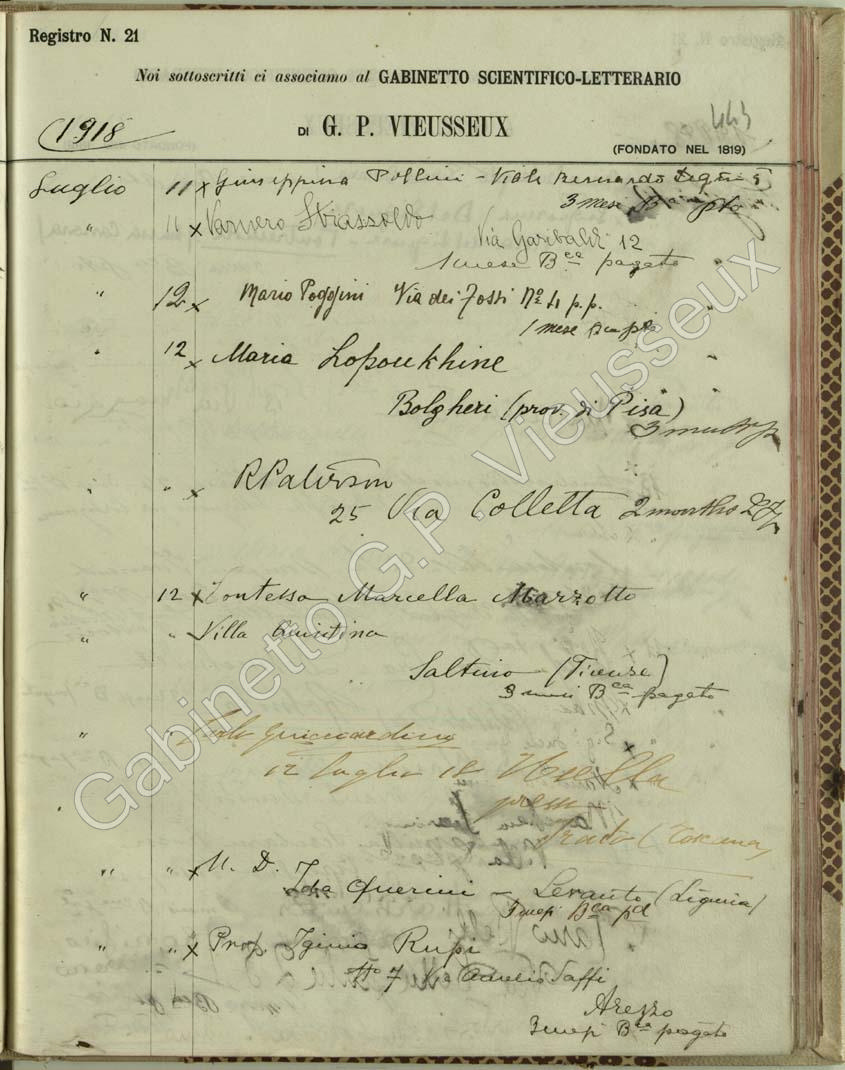 Registro N. 21
Noi sottoscritti ci associamo al GABINETTO SCIENTIFICO-LETTERARIO
1918
443
DI G. P. VIEUSSEUX
(FONDATO NEL 1819)
Luglio 11 x Giuseppina Pollini - Viale Bernardo
3 mesi
" 11 x Strassoldo
Via Garibaldi 12
1 mese Bca pagato "
" 12 x Mario Poggini Via dei Fossi No 4 p.p. "
1 mese Bca pto
" 12 x Maria Lopoukhine "
Bolgheri (prov. di Pisa) "
3 mesi
" " x R Paterson
25 Via Colletta 2 months
" 12 x Contessa Marcella Marzotto
" " Villa
Saltino (Firenze)
3 mesi Bca pagato
" Guicciardini
12 luglio 18 Usella
presso
Prato (Toscana)
" " x N. D.
Ida Querini - Levanto (Liguria)
3 mesi Bca pd
" " x Prof. Iginio Rupi
No 7 Via Aurelio Saffi
Arezzo
3 mesi Bca pagato
Gabinetto G.P. Vieusseux